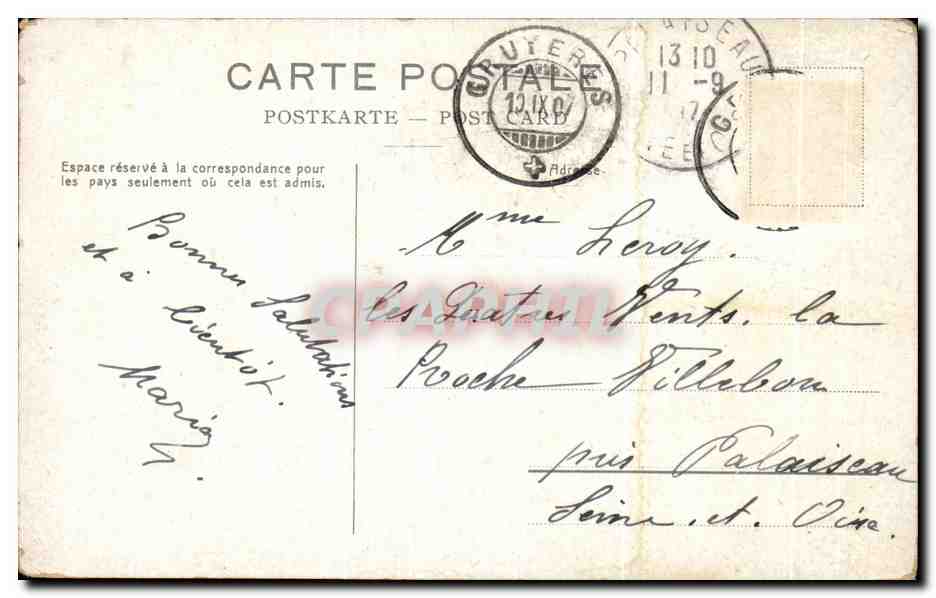 CARTE POSTALE
POSTKARTE — POST CARD
GRUYERES
PALAISEAU
13 10
11 - 9
Espace réservé à la correspondance pour
les pays seulement où cela est admis.
Adresse
Bonnes Salutations
et à bientôt.
Maria
Mme Leroy.
les Quatres Vents. la
Roche Villebon
près Palaiseau
Seine. et. Oise.
CPAPHIL